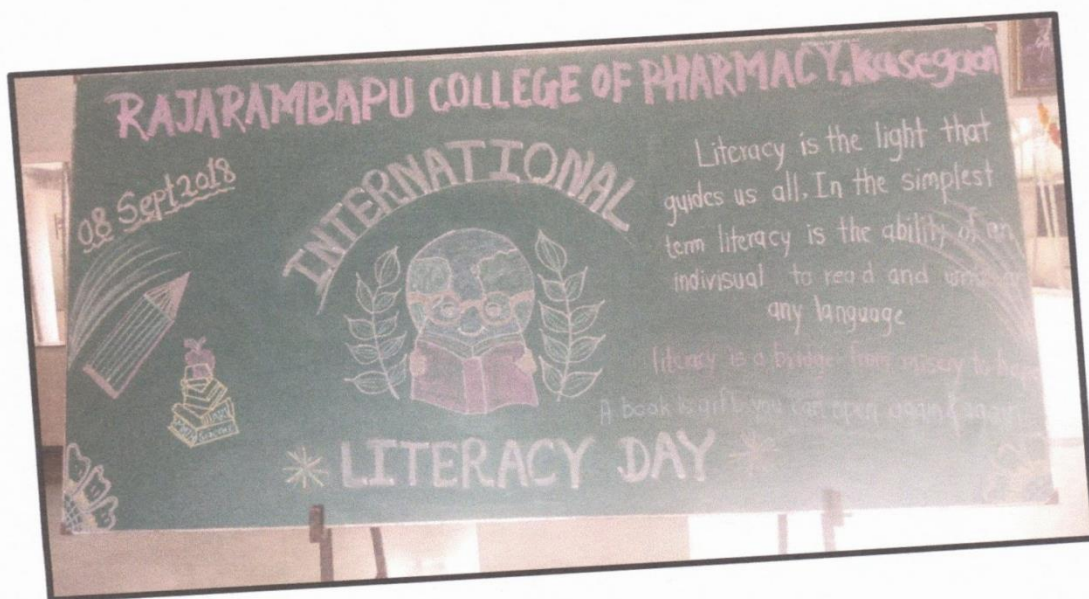 RAJARAMBAPU COLLEGE OF PHARMACY, Kasegaon
08 Sept 2018
INTERNATIONAL
LITERACY DAY
Literacy is the light that
guides us all. In the simplest
term literacy is the ability of an
indivisual to read and
any language
literacy is a bridge from misery to hope
A book is gift you can open again &